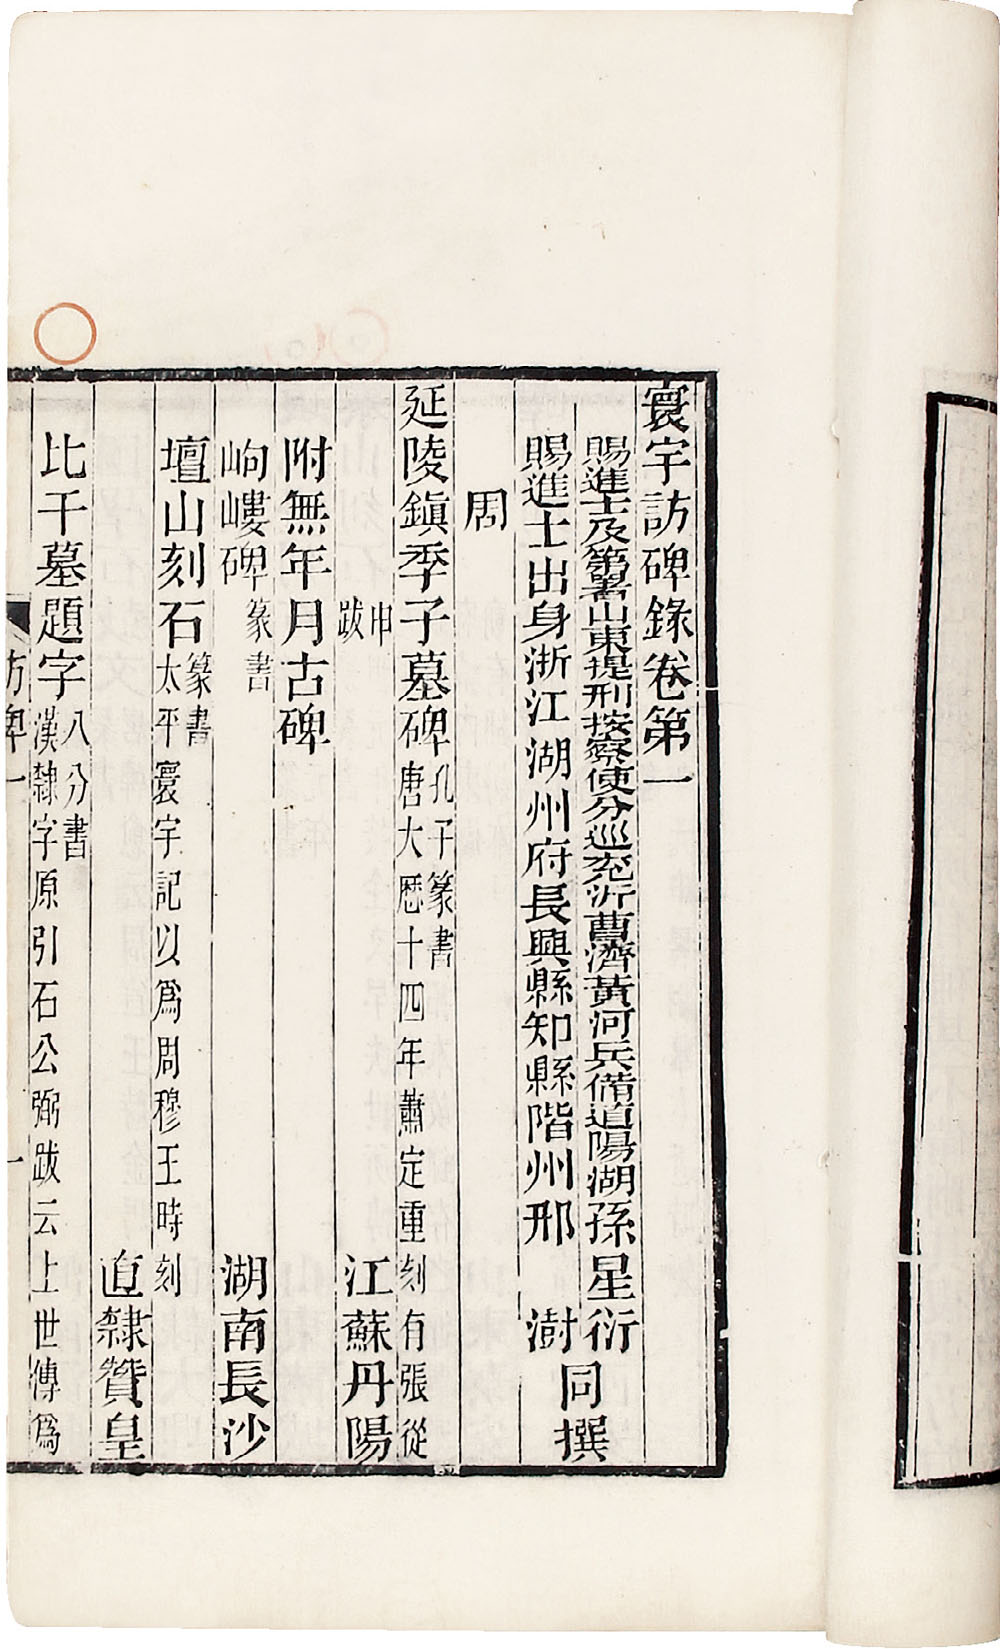 寰宇訪碑錄卷第一
賜進士及第署山東提刑按察使分巡兖沂曹濟黃河兵備道陽湖孫星衍
賜進士出身浙江湖州府長興縣知縣階州邢 澍
同撰
周
延陵鎭季子墓碑
孔子篆書
唐大曆十四年蕭定重刻有張從
申
跋
江蘇丹陽
附無年月古碑
岣嶁碑
篆書
湖南長沙
壇山刻石
篆書
太平寰宇記以爲周穆王時刻
直隸贊皇
比干墓題字
八分書
漢隸字原引石公弼跋云上世傳爲
訪碑一
一